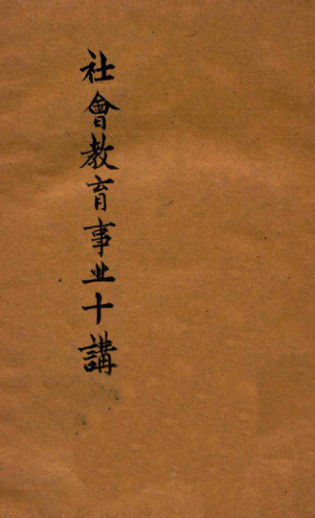 社會教育事业十講